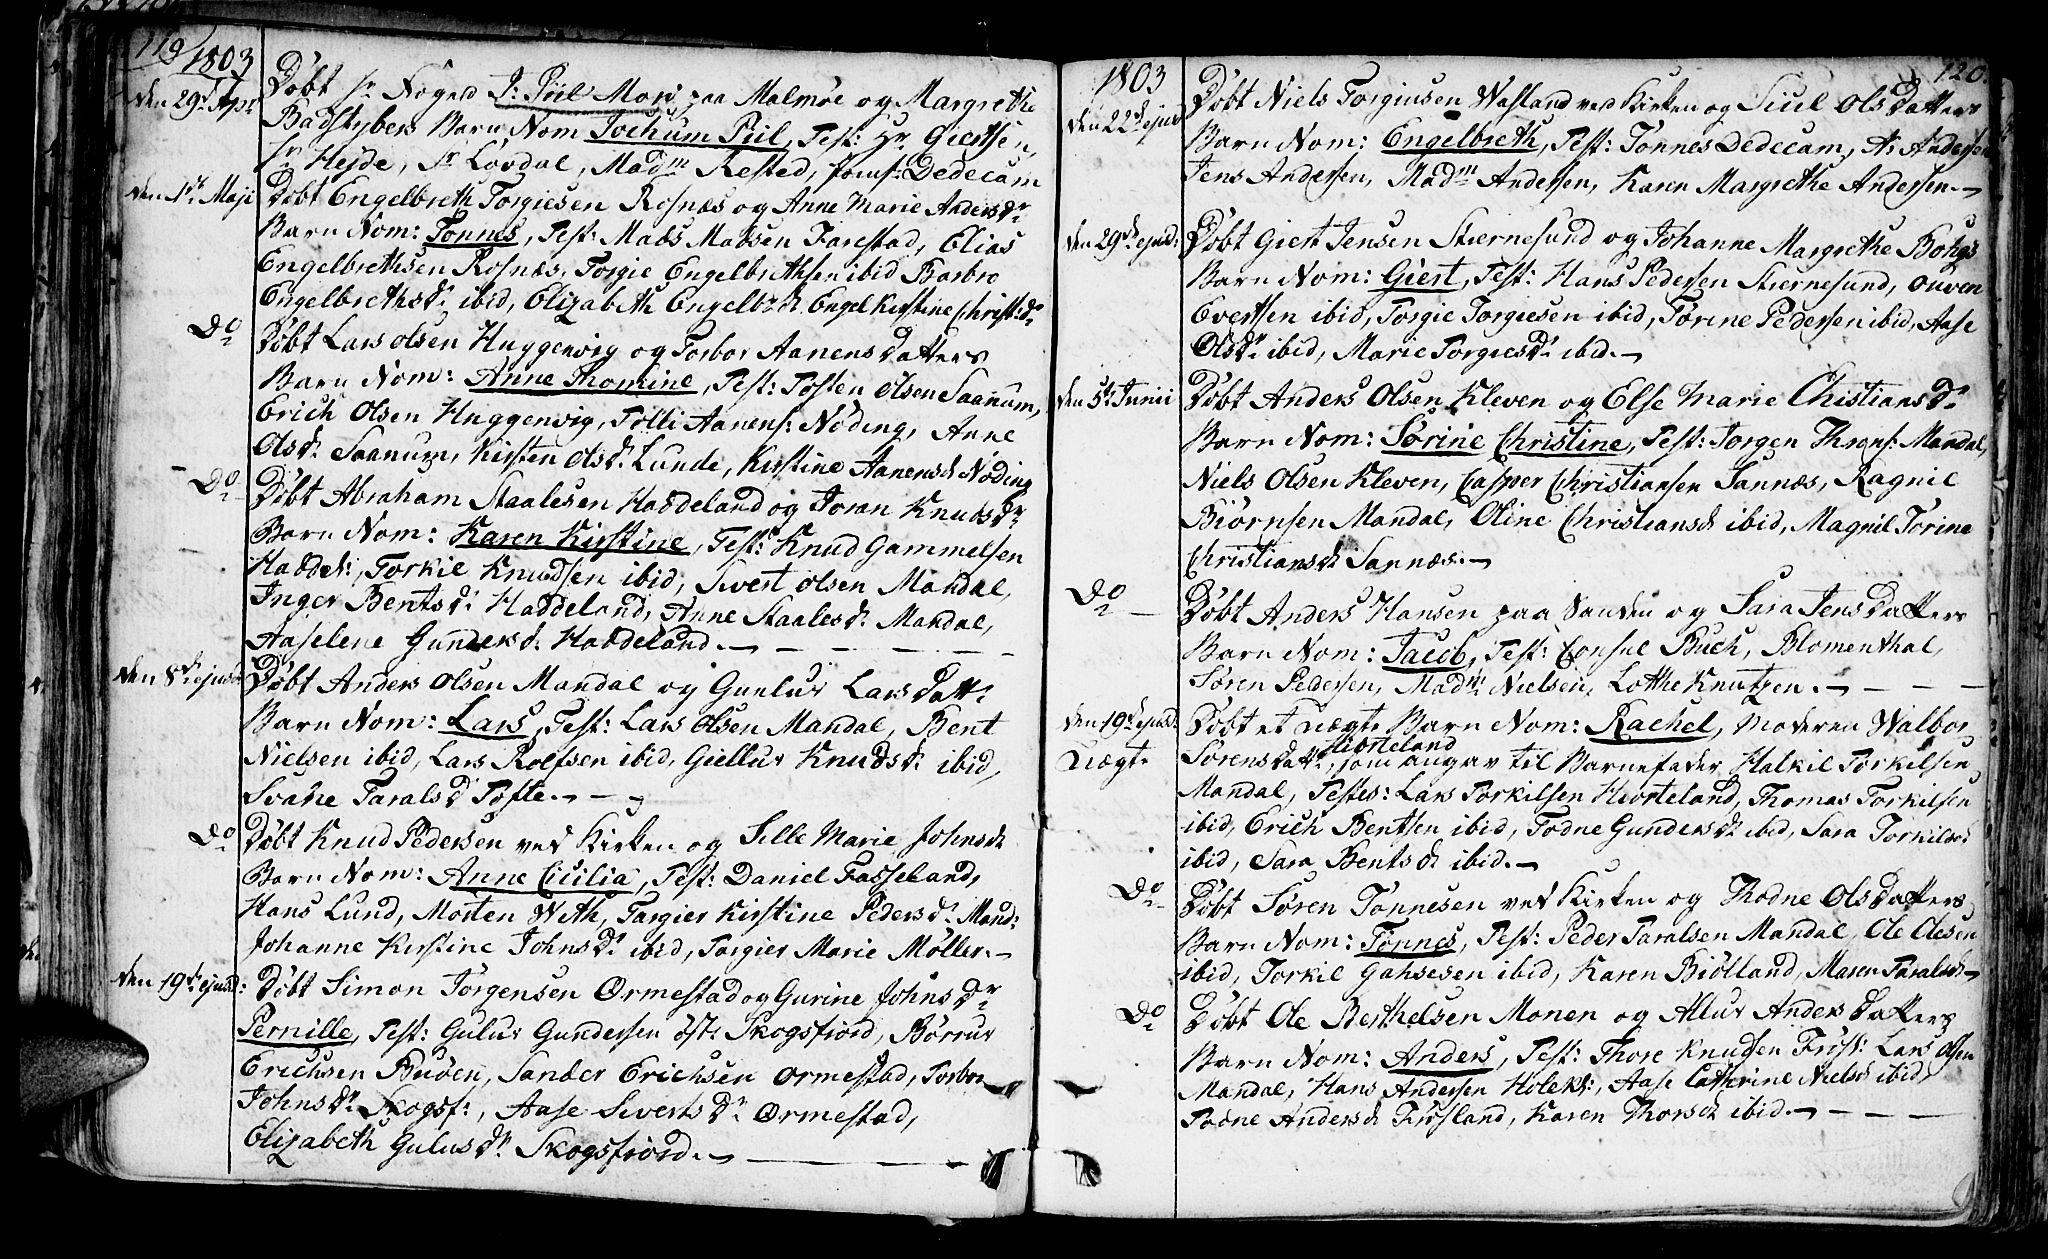 119
1803
den 29de Apr
Døbt Sr Foged P: Piil Mori paa Malmøe og Margrethe
Badstybers Barn Nom Jochum Piil, Test: Hr Giertsen,
Sr Heyde, Sr Løvdal, Madm Rested, Jomf: Dedecam
den 1de Maji
Døbt Engelbreth Torgiesen Rosnæs og Anne Marie Andersdr
Barn Nom: Tønnes, Test: Mads Madsen Farestad, Elias
Engelbrethsen Rosnæs, Torgie Engelbrethsen ibid Barbro
Engelbrethsdr ibid, Elizabeth Engelbrd: Engel Kirstine Christsdr
Do
Døbt Lars Olsen Huggenvig og Torbor Aanens Datters
Barn Nom: Anne Thomine, Test: Tosten Olsen Saanum,
Erich Olsen Huggenvig, Tolli Aanens: Nøding, Anne
Olsdr Saanum, Kirsten Olsd: Lunde, Kirstine Aanensd: Nøding
Do
Døbt Abraham Staalesen Haddeland og Joran Knudsdr
Barn Nom: Karen Kirstine, Test: Knud Gammelsen
Hadde:, Torkil Knudsen ibid, Sivert Olsen Mandal,
Inger Bentsdr Haddeland, Anne Staalesdr Mandal,
Aaselene Gundersd: Haddeland.
den 8de ejusd
Døbt Anders Olsen Mandal og Gunlur Lars Datt:
Barn Nom: Lars, Test: Lars Olsen Mandal, Bent
Nielsen ibid, Lars Rolfsen ibid, Giellur Knudsdr ibid,
Svane Taralsd Tofte.
Do
Døbt Knud Pedersen ved Kirken og Sille Marie Johnsd:
Barn Nom: Anne Cicilia, Test: Daniel Fasseland,
Hans Lund, Morten With, Targier Kirstine Pedersdr Mand:
Johanne Kirstine Johnsdr ibid, Targier Marie Møller.
den 19de ejusd:
Døbt Simon Jørgensen Ormestad og Gurine Johns Dr
Pernille, Test: Gulur Gundersen østr Skogsfiord, Børrur
Erichsen Buøen, Sander Erichsen Ormestad, Torbor
Johnsdr Skogsf:, Aase Sivertsdr Ormestad,
Elizabeth Gulusdr Skogsfiord.
1803
120.
den 22de ejusd
Døbt Niels Torgiusen Wasland ved Kirken og Siul Ols Datters
Barn Nom: Engelbreth, Test: Tønnes Dedecam, A: Andersen
Jens Andersen, Madm Andersen, Karen Margrethe Andersen.
den 29de ejusd:
Døbt Giert Jensen Stiernesund og Johanne Margrethe Bohus
Barn Nom: Giert, Test: Hans Pedersen Stiernesund, Ouven
Evertsen ibid, Torgie Torgiesen ibid, Tørine Pedersen ibid, Aase
Olsdr ibid, Marie Torgiesdr ibid.
den 5te Junii
Døbt Anders Olsen Kleven og Else Marie Christiansdr
Barn Nom: Sørine Christine, Test: Jørgen Throns: Mandal,
Niels Olsen Kleven, Casper Christiansen Sannæs, Ragnil
Biørnsen Mandal, Oline Christiansd: ibid, Magnil Tørine
Christiansd: Sannæs.
Do
Døbt Anders Hansen paa Sanden og Sara Jens Datters
Barn Nom: Jacob, Test: Consul Buch, Blomenthal,
Søren Pedersen, Madm Nielsen, Lotthe Knutzen.
den 19de ejusd:
uægte
Døbt et uægte Barn Nom: Rachel, Moderen Walbor
Sørensdatt:, Hiorteland som angav til Barnefader Halkil Torkilsen
Mandal, Testes: Lars Torkilsen Hiorteland, Thomas Torkilsen
ibid, Erich Bentsen ibid, Todne Gundersdr ibid, Sara Torkilsd:
ibid, Sara Bentsd: ibid.
Do
Døbt Søren Tønnesen ved Kirken og Thodne Ols Datters
Barn Nom: Tønnes, Test: Peder Taralsen Mandal, Ole Olesen
ibid, Torkil Gahsesen ibid, Karen Biølland, Maren Taralsd:
Do
Døbt Ole Berthelsen Monen og Allur Anders Datters
Barn Nom: Anders, Test: Thore Knudsen Frøst: Lars Olsen
Mandal, Hans Andersen Holeks:, Aase Catherine Nielsd: ibid,
Todne Andersd: Frøsland, Karen Thorsd: ibid.